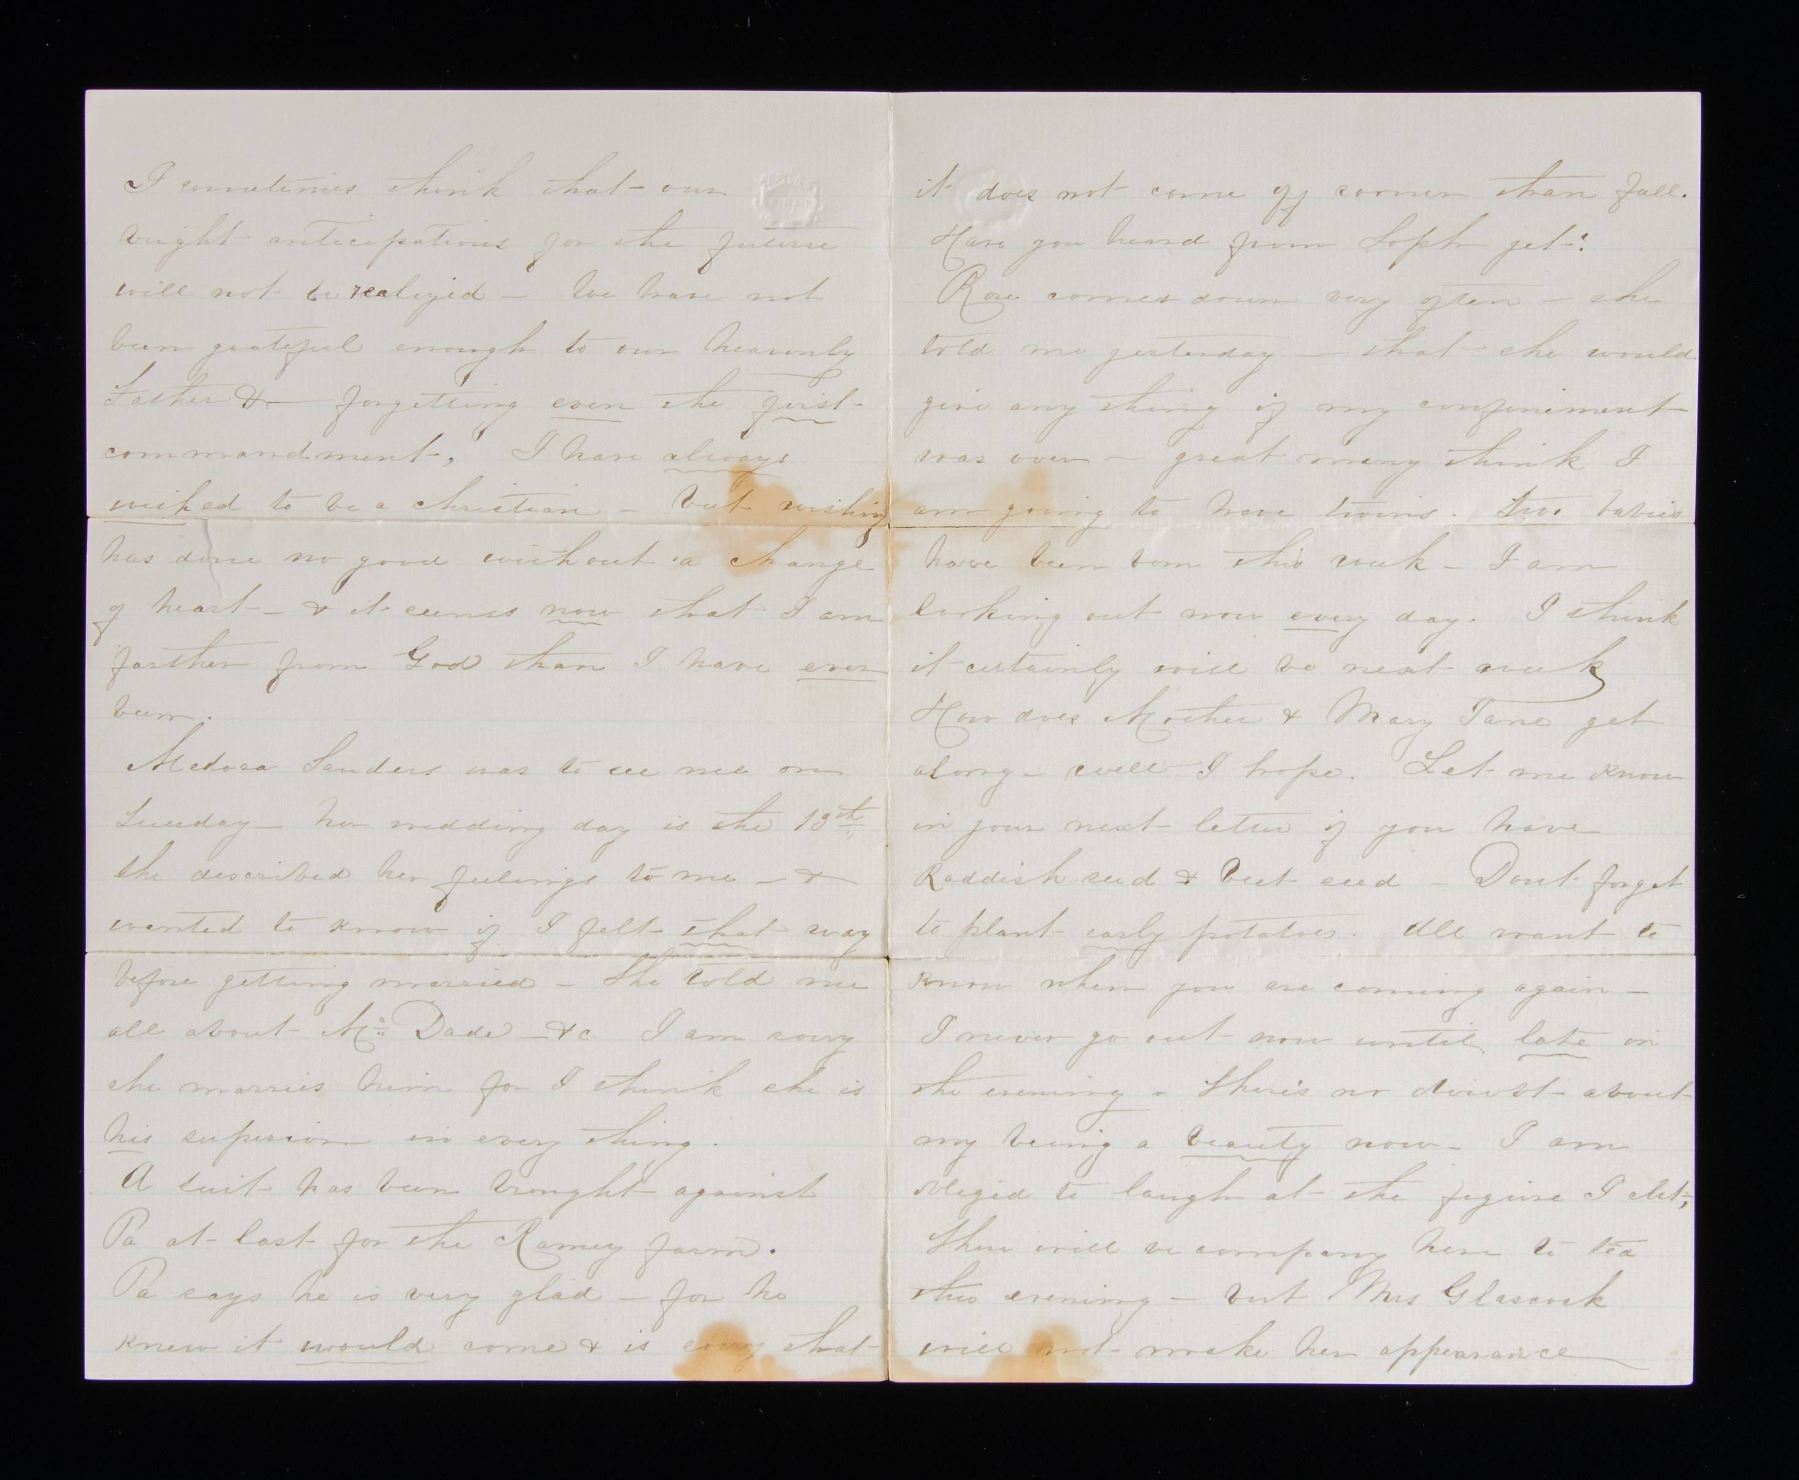 I sometimes think that our
bright anticipations for the future
will not be realized — We have not
been grateful enough to our heavenly
Father & — forgetting even the first
commandment, I have always
wished to be a christian — but wishing
has done no good without a change
of heart — & it seems now that I am
farther from God than I have ever
been.
Medora Sanders was to see me on
Tuesday — her wedding day is the 13th
She described her feelings to me — &
wanted to know if I felt that way
before getting married — She told me
all about Mr. Dade — &c I am sorry
she marries him for I think she is
his superior in every thing.
A suit has been brought against
Pa at last for the Ramey farm.
Pa says he is very glad — for he
knew it would come & is sorry that
it does not come off sooner than fall.
Have you heard from Soph yet?
Rose comes down very often — she
told me yesterday — that she would
give any thing if my confiniment
was over — great many think I
am going to have twins. Two babies
have been born this week — I am
looking out now every day. I think
it certainly will be next week
How does Mother & Mary Jane get
along — well I hope. Let me know
in your next letter if you have
Raddish seed & beet seed — Dont forget
to plant early potatoes. All want to
know when you are coming again —
I never go out now until late in
the evening. There's no doubt about
my being a beauty now — I am
obliged to laugh at the figure I cut,
There will be company here to tea
this evening — but Mrs Glascock
will not make her appearance